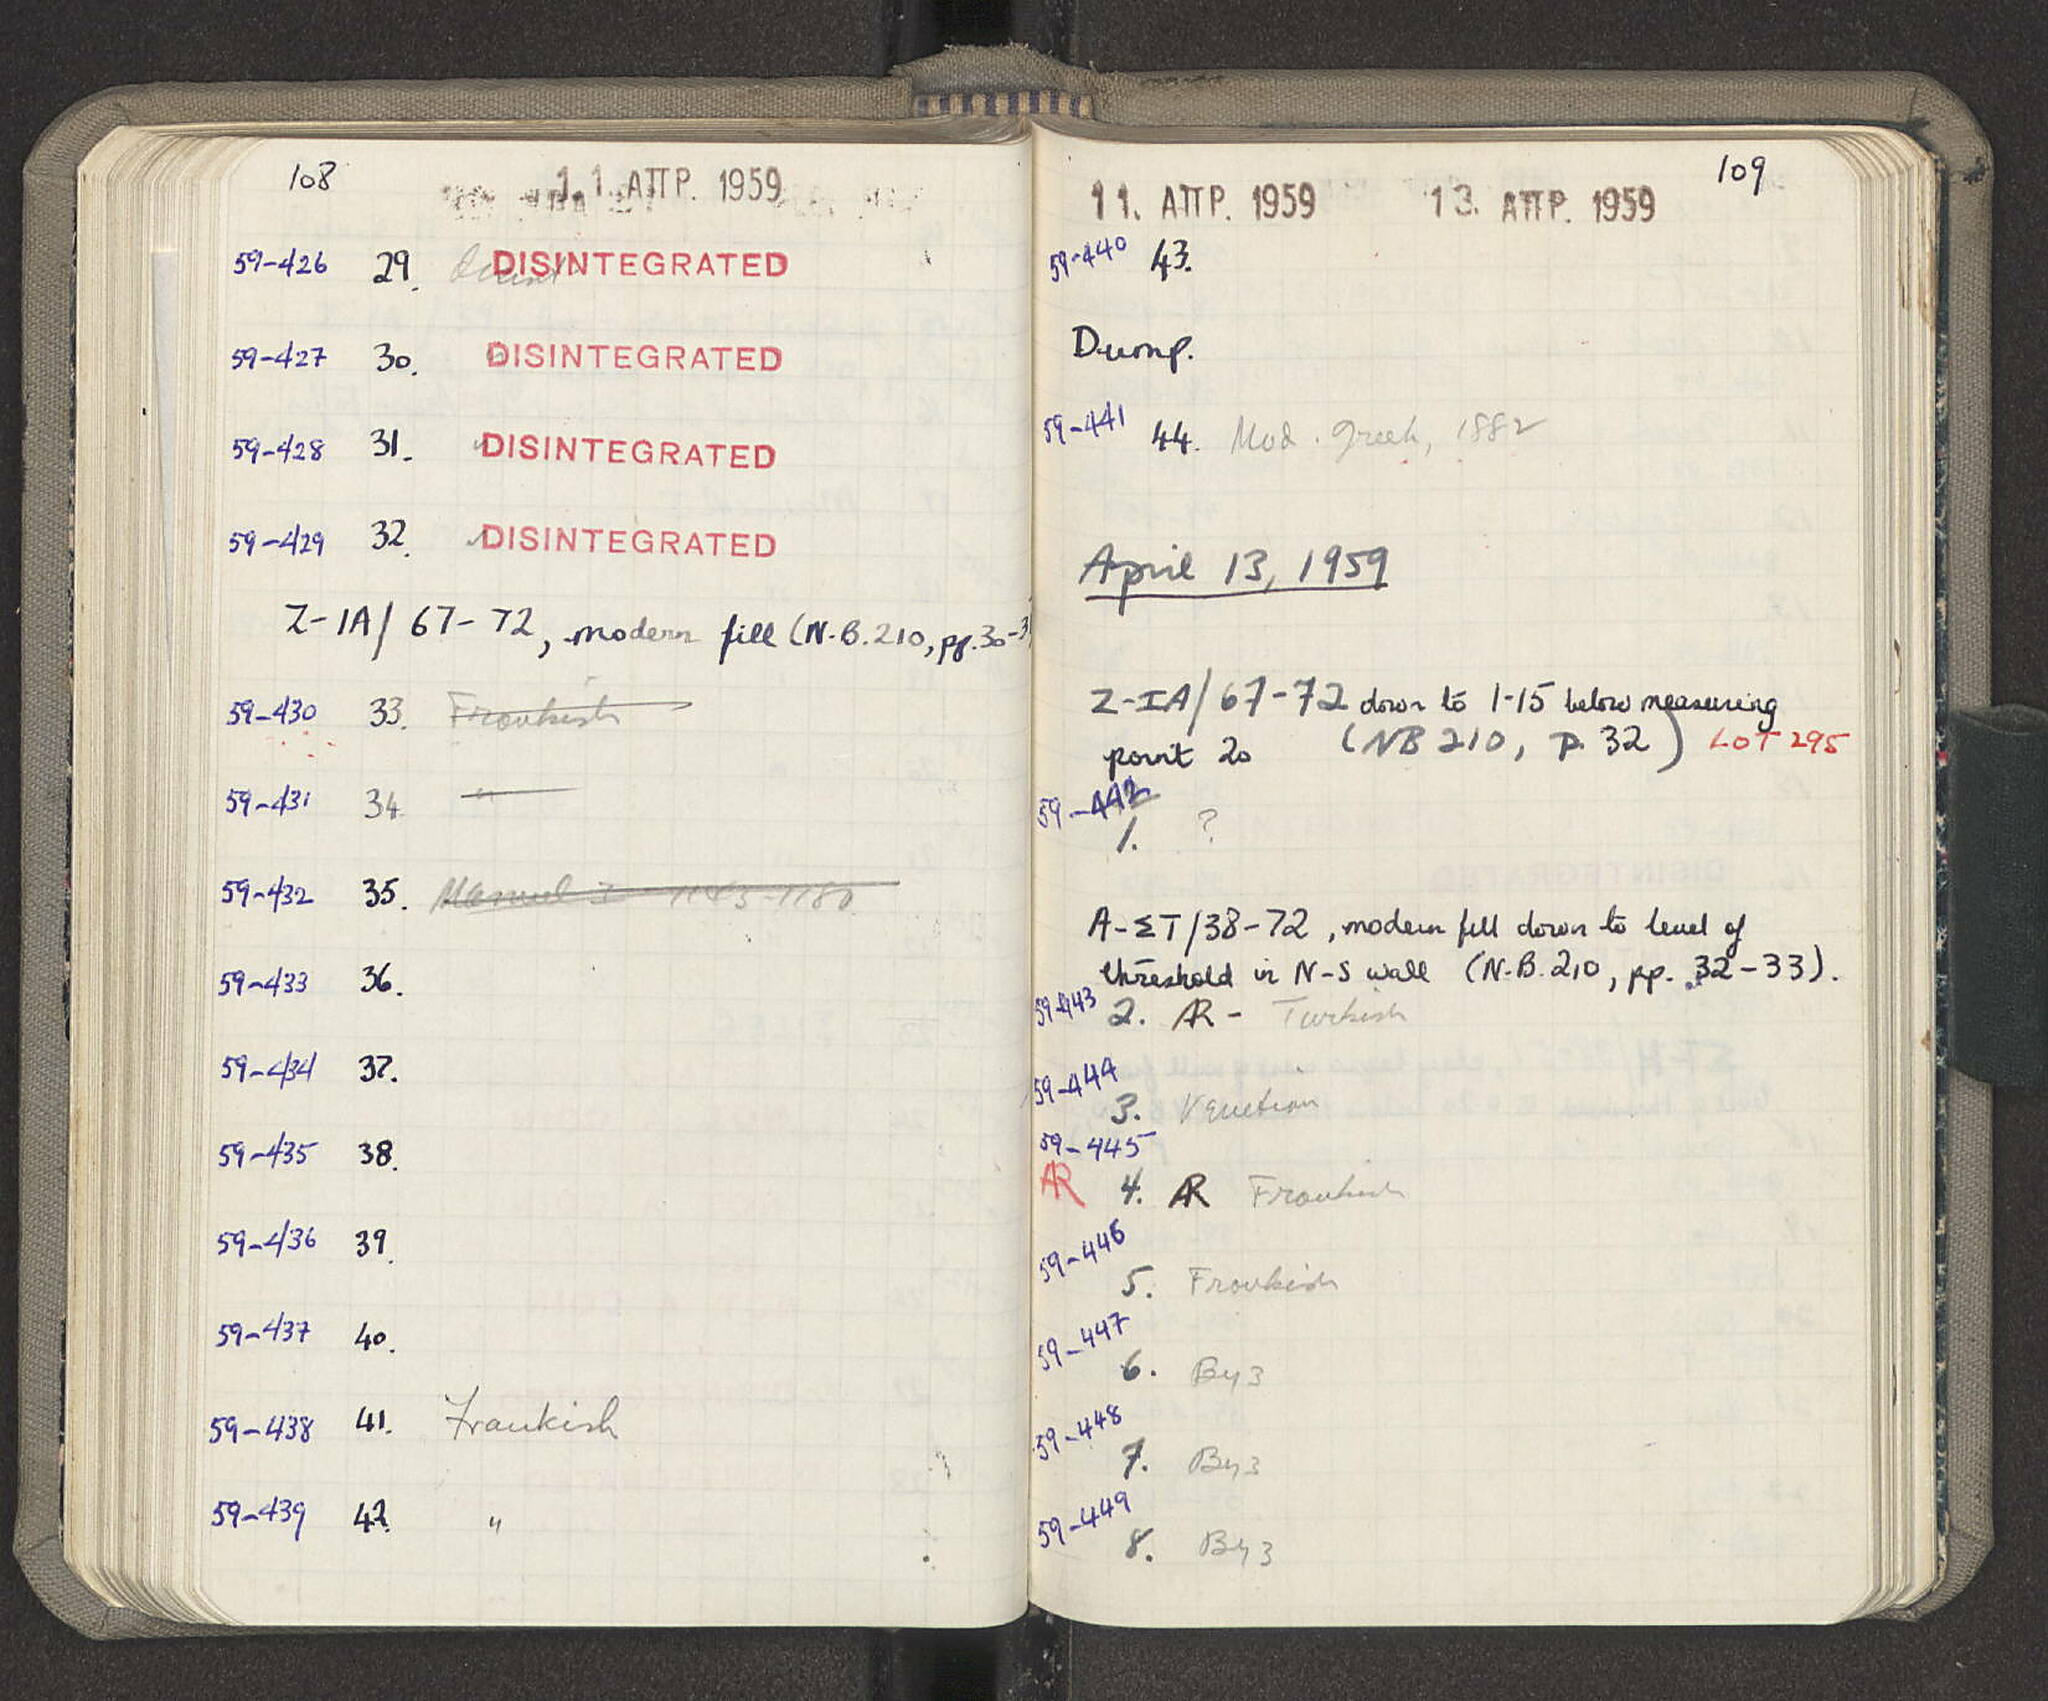 108
11. ΑΠΡ. 1959
59-426 29. DISINTEGRATED
59-427 30. DISINTEGRATED
59-428 31. DISINTEGRATED
59-429 32. DISINTEGRATED
Z-IA/67-72, modern fill (N.B.210, pp.30-3
59-430 33. Frankish
59-431 34 "
59-432 35. Manuel I 1143-1180
59-433 36.
59-434 37.
59-435 38.
59-436 39.
59-437 40.
59-438 41. Frankish
59-439 42. "
109
11. ΑΠΡ. 1959 13. ΑΠΡ. 1959
59-440 43.
Dump.
59-441 44. Mod. Greek, 1882
April 13, 1959
Z-IA/67-72 down to 1-15 below measuring
point 20 (NB 210, p. 32) LOT 295
59-442
1. ?
A-ΣT/38-72, modern fill down to level of
threshold in N-S wall (N.B.210, pp. 32-33).
59-443 2. AR - Turkish
59-444
3. Venetian
59-445
AR 4. AR Frankish
59-446
5. Frankish
59-447
6. Byz
59-448
7. Byz
59-449
8. Byz